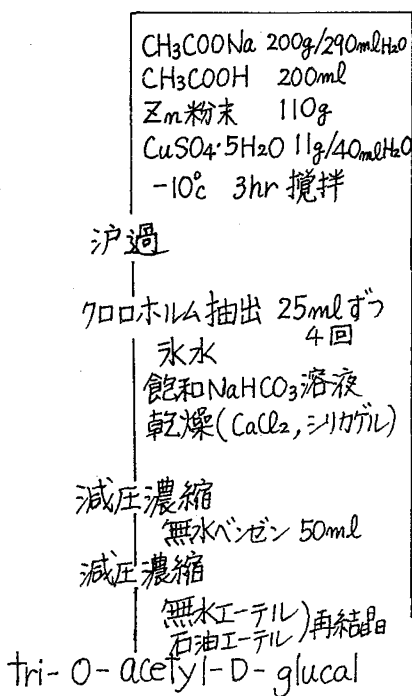 CH3COONa 200g/290mlH2O
CH3COOH 200ml
Zn粉末 110g
CuSO4・5H2O 11g/40mlH2O
-10℃ 3hr 撹拌
沪過
クロロホルム抽出 25mlずつ
4回
氷水
飽和NaHCO3溶液
乾燥(CaCl2,シリカゲル)
減圧濃縮
無水ベンゼン 50ml
減圧濃縮
無水エーテル
石油エーテル)再結晶
tri-O-acetyl-D-glucal